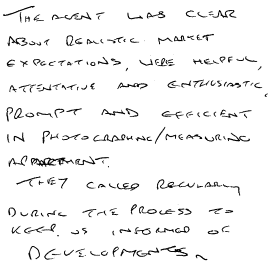 THE AGENT WAS CLEAR
ABOUT REALISTIC MARKET
EXPECTATIONS, WERE HELPFUL,
ATTENTATIVE AND ENTHUSIASTIC,
PROMPT AND EFFICIENT
IN PHOTOGRAPHING/MEASURING
APPARTMENT.
THEY CALLED REGULARLY
DURING THE PROCESS TO
KEEP US INFORMED OF
DEVELOPMENTS.